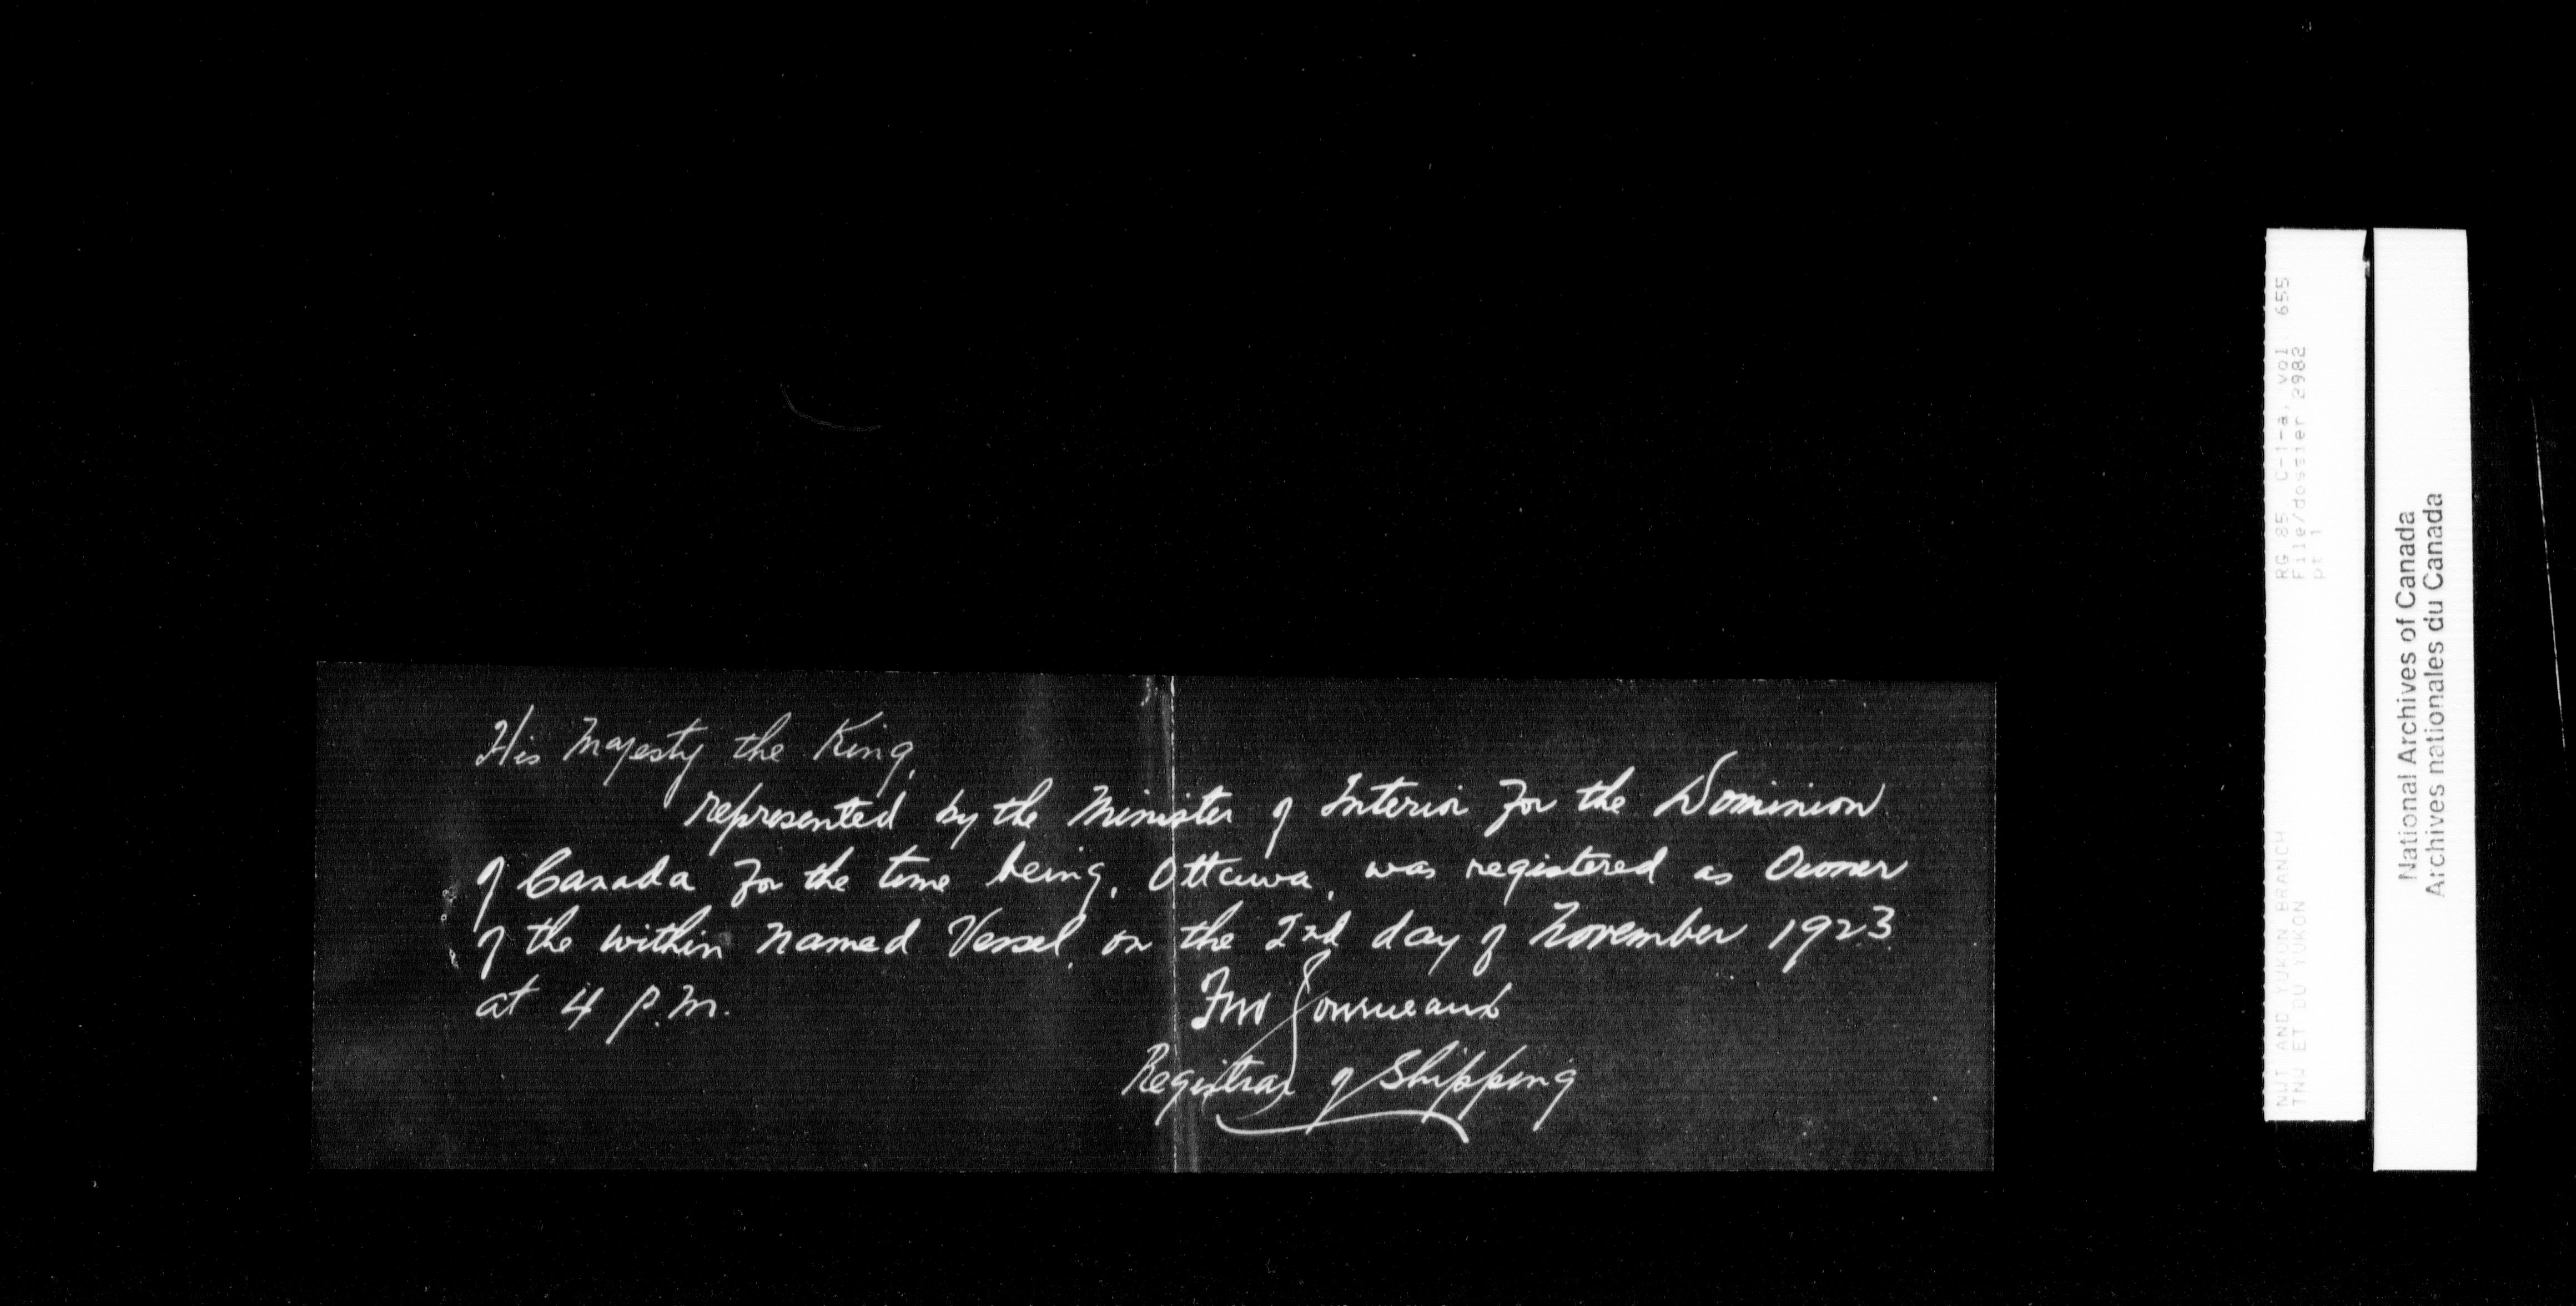 His Majesty the King,
represented by the Minister of Interior for the Dominion
of Canada for the time being, Ottawa, was registered as Owner
of the within named Vessel, on the 2nd day of November 1923
at 4 p.m.
Jno
Registrar of Shipping
RG 85, C-1-a, vol 655
File/dossier 2982
pt 1
NWT AND YUKON BRANCH
TNW ET DU YUKON
National Archives of Canada
Archives nationales du Canada